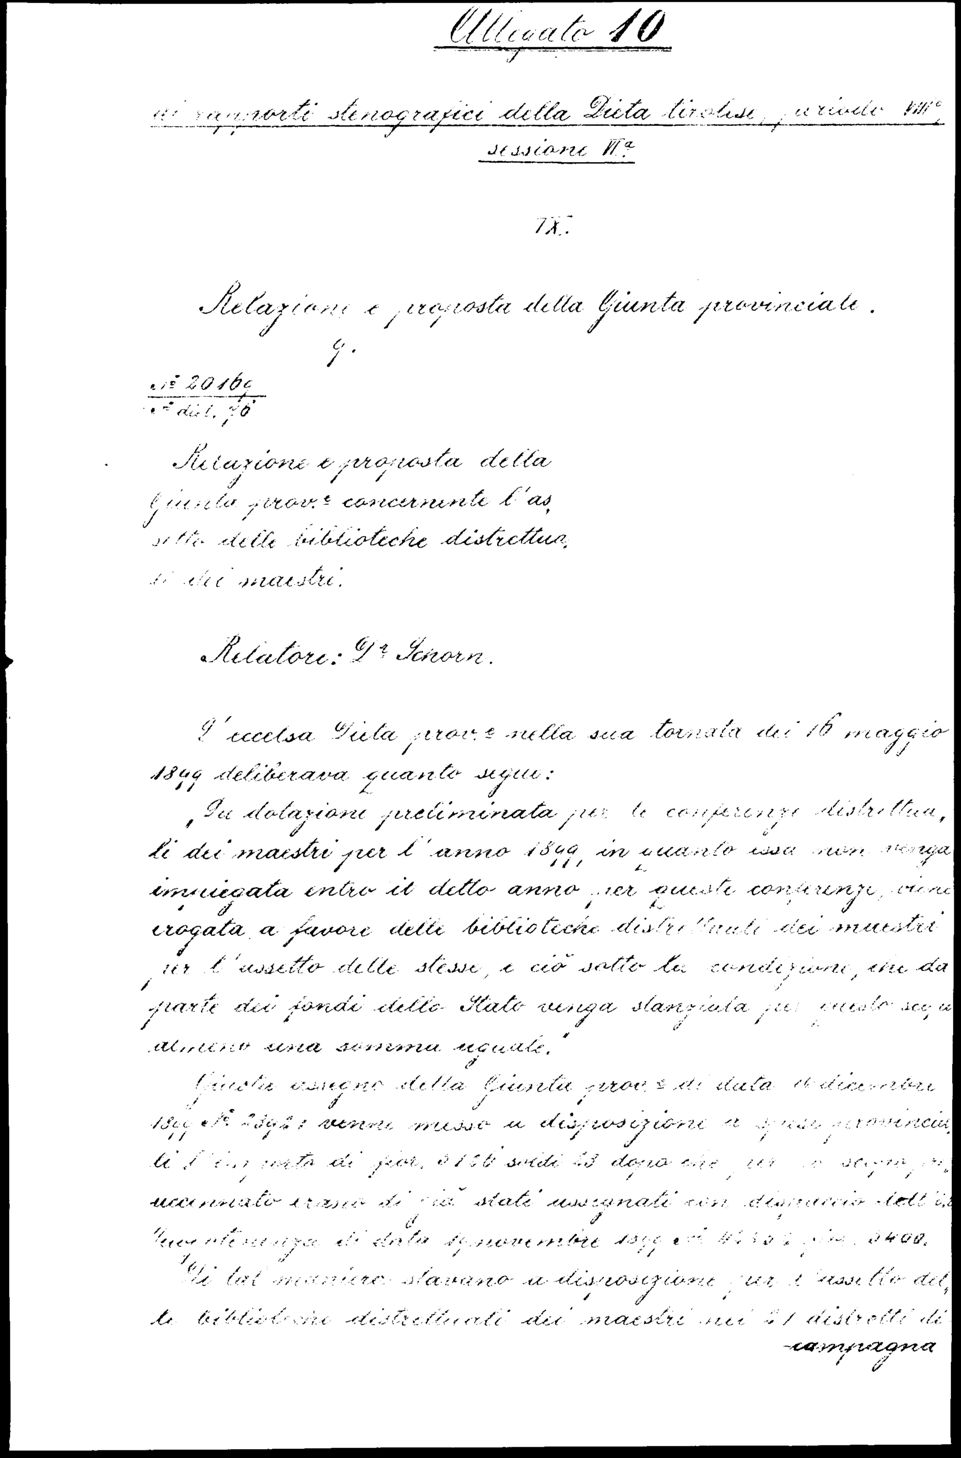 Allegato 10
ai rapporti stenografici della Dieta tirolese, periodo VIIIº,
sessione VIª
IX.
Relazione e proposta della Giunta provinciale.
9.
Nº 20169
Nº diet. 76
Relazione e proposta della
Giunta prov.e concernente l'as,
setto delle biblioteche distrettua,
li dei maestri.
Relatore: Dr Schorn.
L'eccelsa Dieta prov.e nella sua tornata dei 16 maggio
1899 deliberava quanto segue:
„La dotazione preliminata per le conferenze distrettua,
li dei maestri per l'anno 1899, in quanto essa non venga
impiegata entro il detto anno per queste conferenze, viene
erogata a favore delle biblioteche distrettuali dei maestri
per l'assetto delle stesse, e ciò sotto la condizione, che da
parte dei fondi dello Stato venga stanziata per questo scopo
almeno una somma uguale."
Giusta assegno della Giunta prov.e di data dicembre
1899 Nº venne messo a disposizione a spese provincia,
li l'importo di fior. soldi 23 dopo che per lo scopo
accennato erano di già stati assegnati con dispaccio dell'
Luogotenenza di data 19 novembre 1899 Nº fior. 3400.
Di tal maniera stavano a disposizione per l'assetto del,
le biblioteche distrettuali dei maestri nei 21 distretti di
campagna